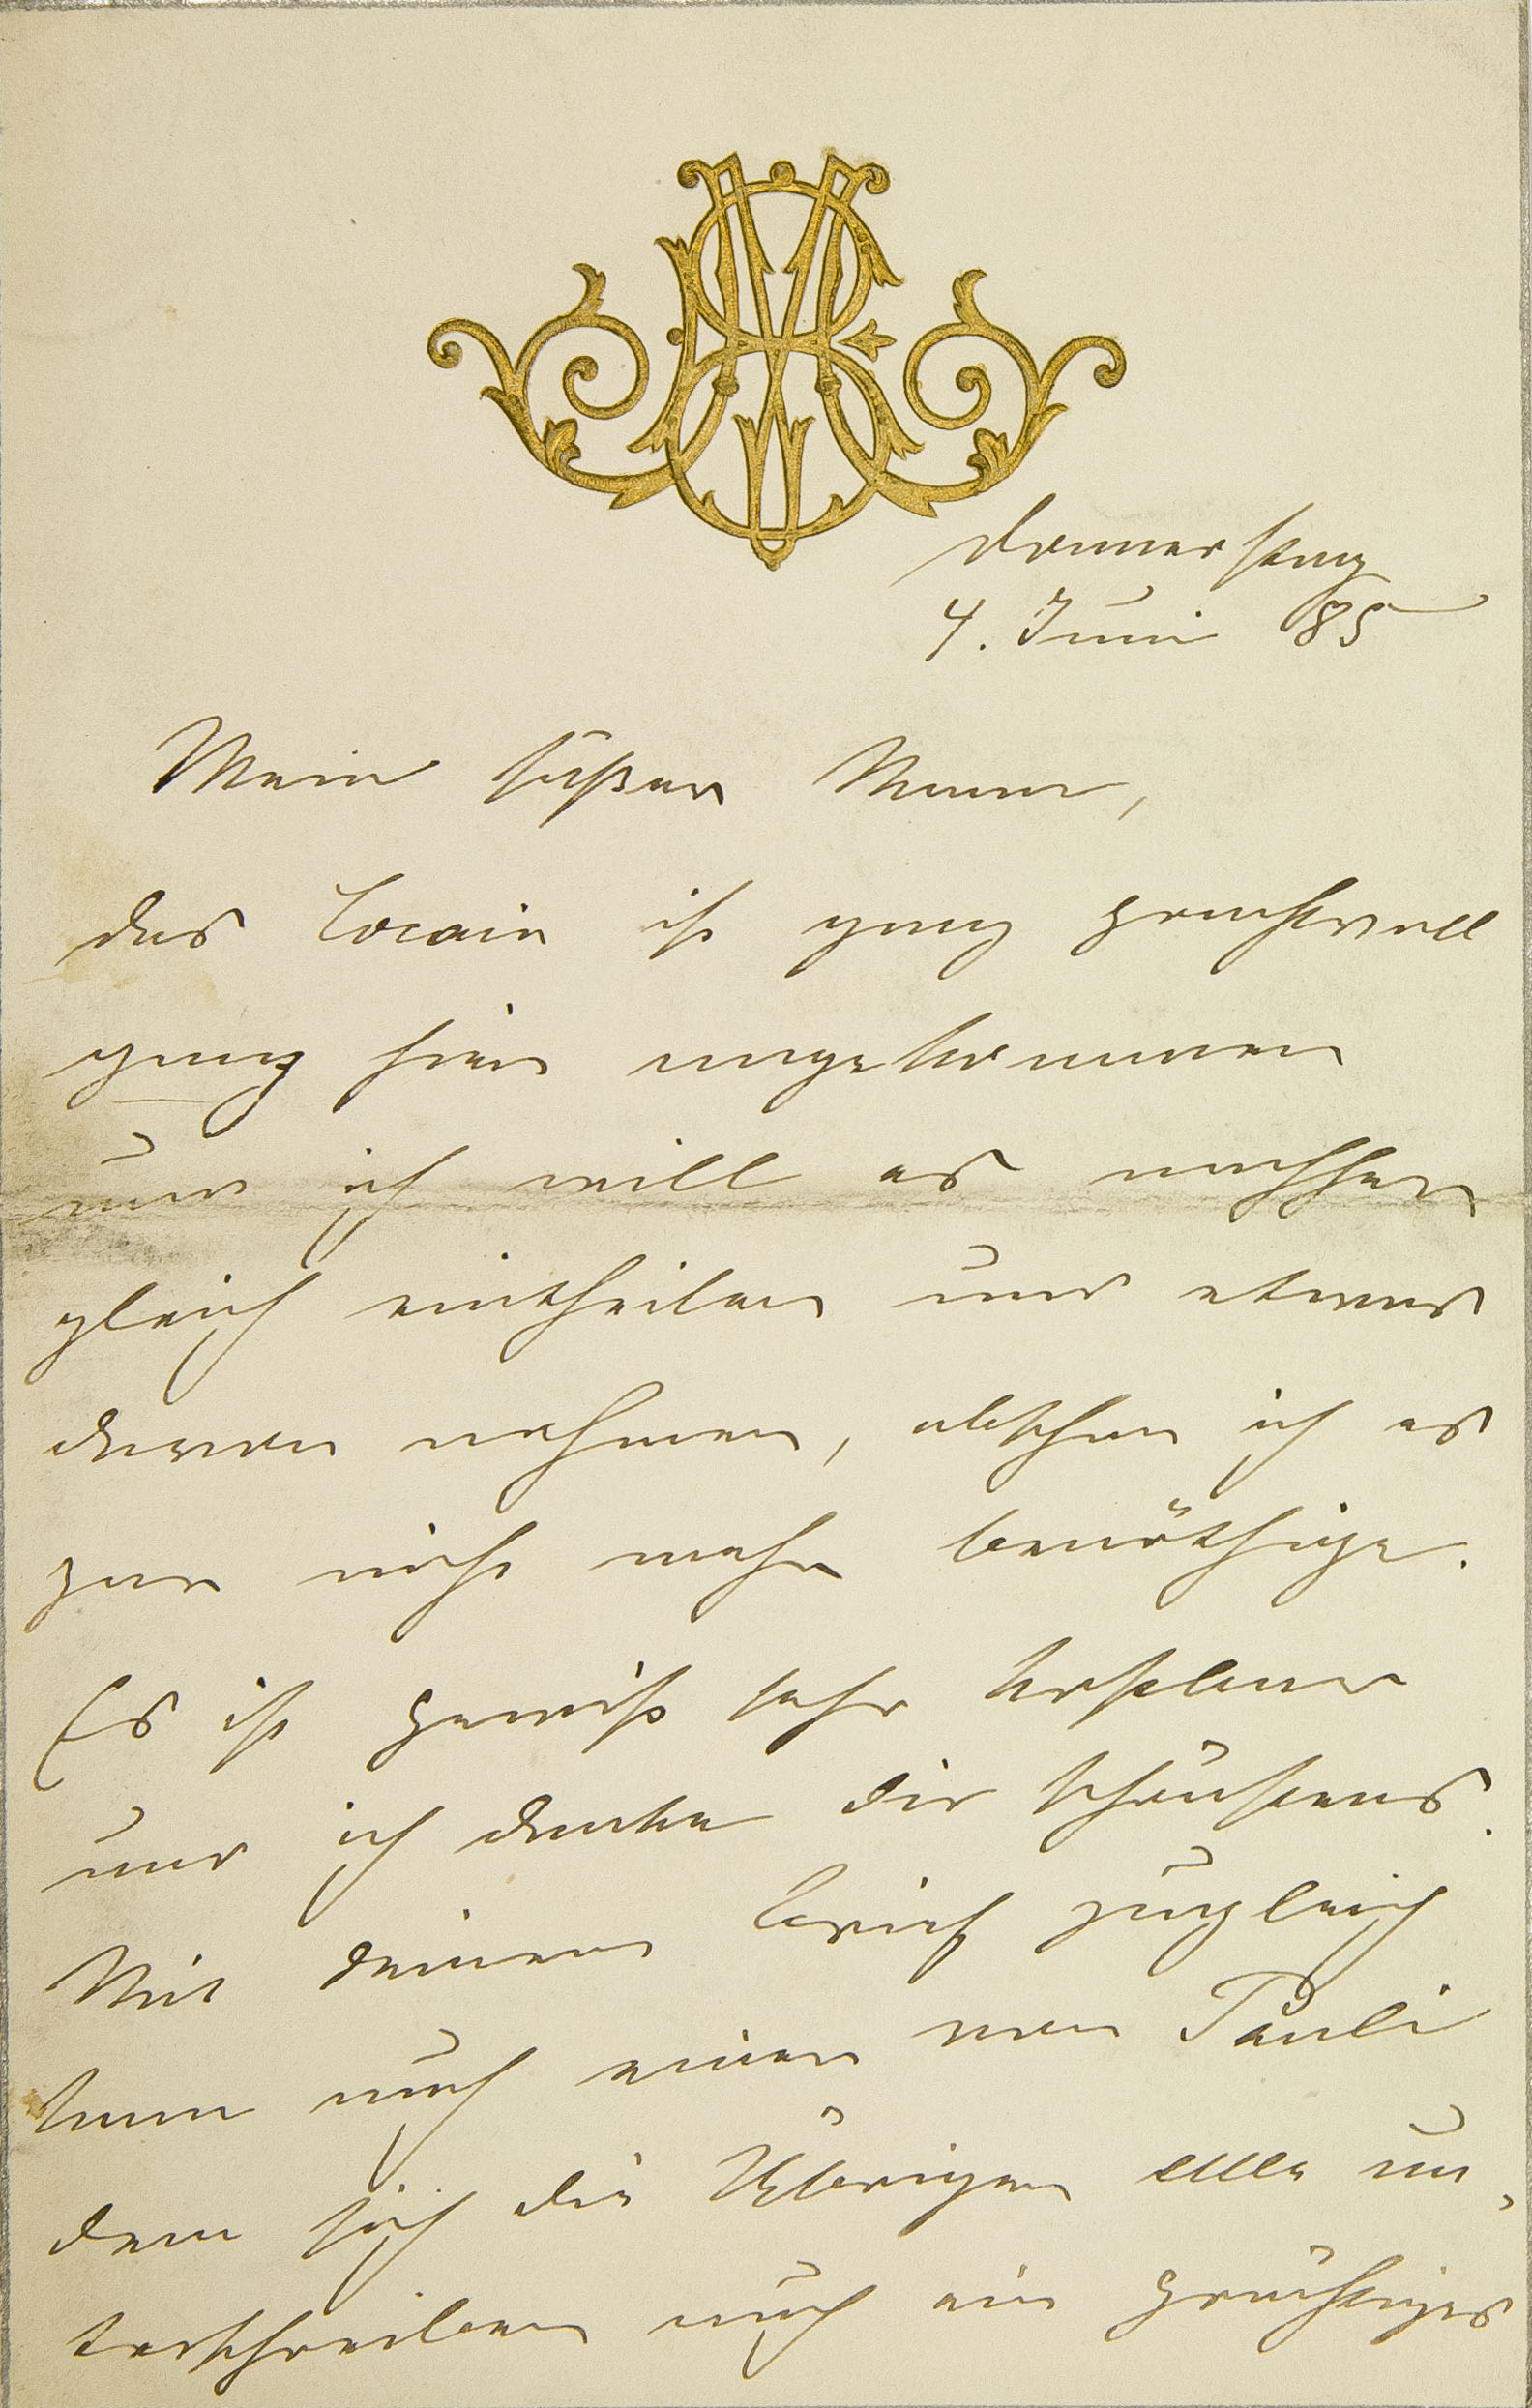 Donnerstag
4. Juni 85
Mein süßer Mann,
das Cocain ist ganz prachtvoll
ganz hier angekommen
und ich will es nachher
gleich eintheilen und etwas
davon nehmen, obschon ich es
gar nicht mehr benöthige.
Es ist gewiß sehr kostbar
und ich danke dir schönstens.
Mit deinem Brief zugleich
kam auch einer von Pauli
dem sich die Übrigen alle un-
terschreiben auch ein prächtiges